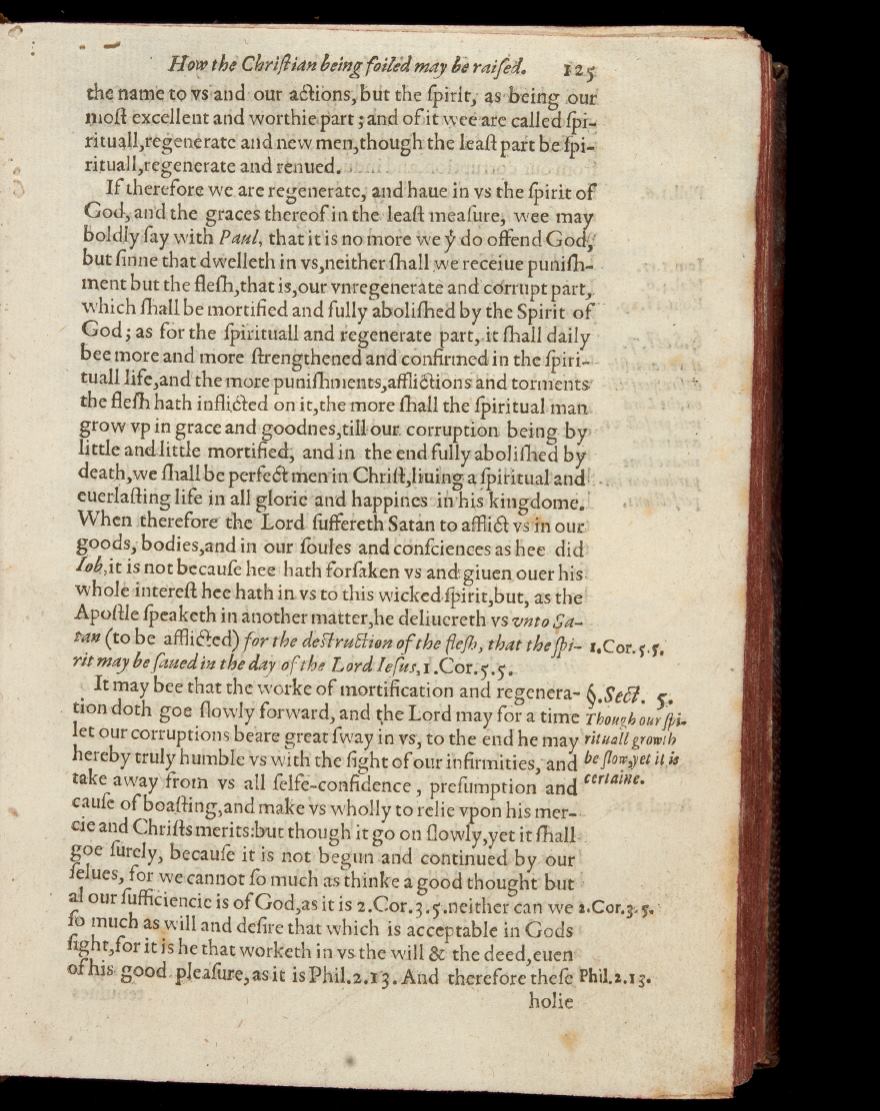 How the Chriſtian being foiled may be raiſed. 125
the name to vs and our actions, but the ſpirit, as being our
moſt excellent and worthie part; and of it wee are called ſpi-
rituall, regenerate and new men, though the leaſt part be ſpi-
rituall, regenerate and renued.
If therefore we are regenerate, and haue in vs the ſpirit of
God, and the graces thereof in the leaſt meaſure, wee may
boldly ſay with Paul, that it is no more we yͭ do offend God,
but ſinne that dwelleth in vs, neither ſhall we receiue puniſh-
ment but the fleſh, that is, our vnregenerate and corrupt part,
which ſhall be mortified and fully aboliſhed by the Spirit of
God; as for the ſpirituall and regenerate part, it ſhall daily
bee more and more ſtrengthened and confirmed in the ſpiri-
tuall life, and the more puniſhments, afflictions and torments
the fleſh hath inflicted on it, the more ſhall the ſpiritual man
grow vp in grace and goodnes, till our corruption being by
little and little mortified, and in the end fully aboliſhed by
death, we ſhall be perfect men in Chriſt, liuing a ſpiritual and
euerlaſting life in all glorie and happines in his kingdome.
When therefore the Lord ſuffereth Satan to afflict vs in our
goods, bodies, and in our ſoules and conſciences as hee did
Iob, it is not becauſe hee hath forſaken vs and giuen ouer his
whole intereſt hee hath in vs to this wicked ſpirit, but, as the
Apoſtle ſpeaketh in another matter, he deliuereth vs vnto Sa-
tan (to be afflicted) for the deſtruction of the fleſh, that the ſpi- 1.Cor.5.5.
rit may be ſaued in the day of the Lord Ieſus, 1.Cor.5.5.
It may bee that the worke of mortification and regenera- §.Sect. 5.
tion doth goe ſlowly forward, and the Lord may for a time Though our ſpi-
let our corruptions beare great ſway in vs, to the end he may rituall growth
hereby truly humble vs with the ſight of our infirmities, and be ſlow, yet it is
take away from vs all ſelfe-confidence, preſumption and certaine.
cauſe of boaſting, and make vs wholly to relie vpon his mer-
cie and Chriſts merits: but though it go on ſlowly, yet it ſhall
goe ſurely, becauſe it is not begun and continued by our
ſelues, for we cannot ſo much as thinke a good thought but
al our ſufficiencie is of God, as it is 2.Cor.3.5. neither can we 2.Cor.3.5.
ſo much as will and deſire that which is acceptable in Gods
ſight, for it is he that worketh in vs the will & the deed, euen
of his good pleaſure, as it is Phil.2.13. And therefore theſe Phil.2.13.
holie